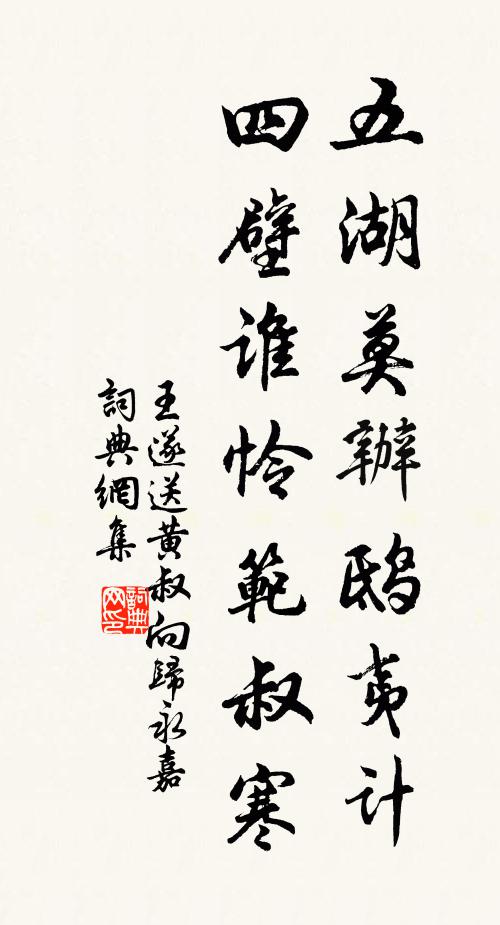 五湖莫辦鴟夷計
四壁谁怜範叔寒
王遂送黄叔向歸永嘉
詞典網集
詞典
网印